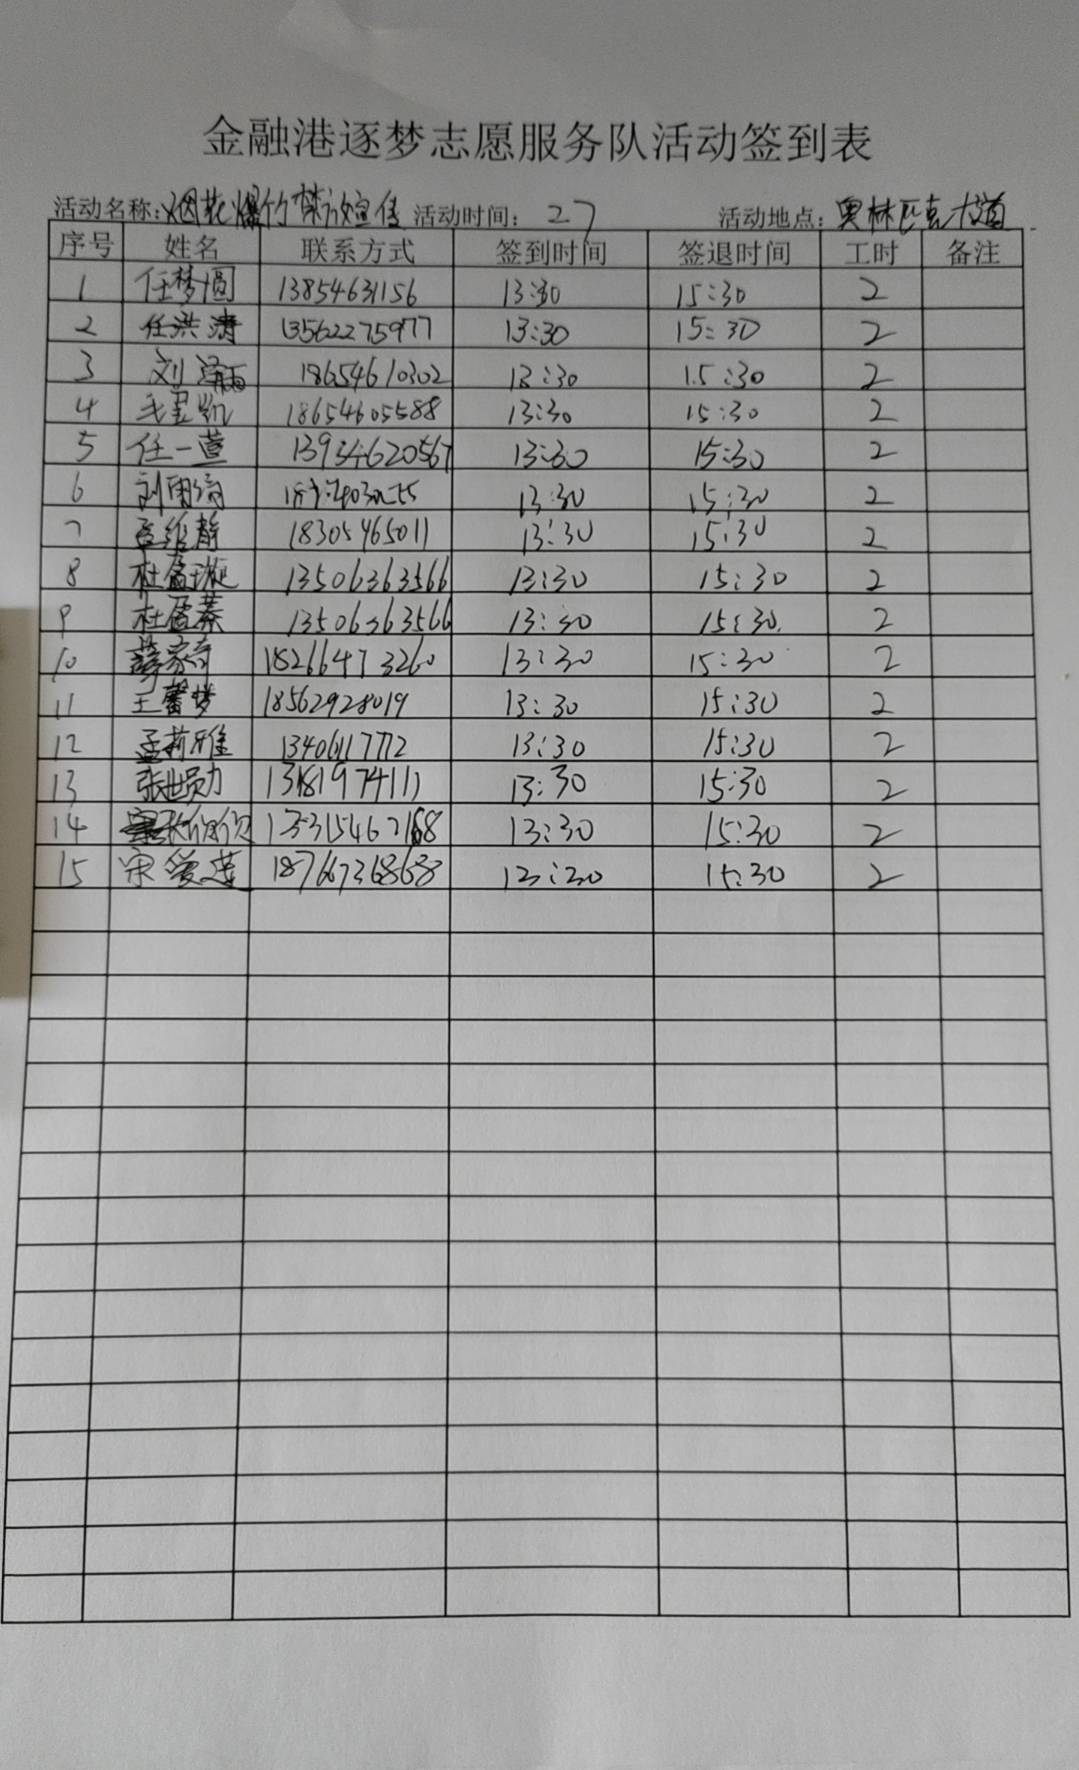 金融港逐梦志愿服务队活动签到表
活动名称:烟花爆竹禁放宣传 活动时间: 27 活动地点:奥林匹克大道
序号 姓名 联系方式 签到时间 签退时间 工时 备注
1 任梦圆 13854631156 13:30 15:30 2
2 任洪涛 13562275977 13:30 15:30 2
3 刘 18654610302 13:30 15:30 2
4 18654605588 13:30 15:30 2
5 任一萱 13954620567 13:30 15:30 2
6 13:30 15:30 2
7 18305465011 13:30 15:30 2
8 杜盈璇 13506363566 13:30 15:30 2
9 杜盈蓁 13506363566 13:30 15:30 2
10 薛家奇 18266473260 13:30 15:30 2
11 王馨梦 18562928019 13:30 15:30 2
12 孟莉雅 13406117712 13:30 15:30 2
13 张世勋 13181974111 13:30 15:30 2
14 13:30 15:30 2
15 宋爱莲 18766736868 13:30 15:30 2